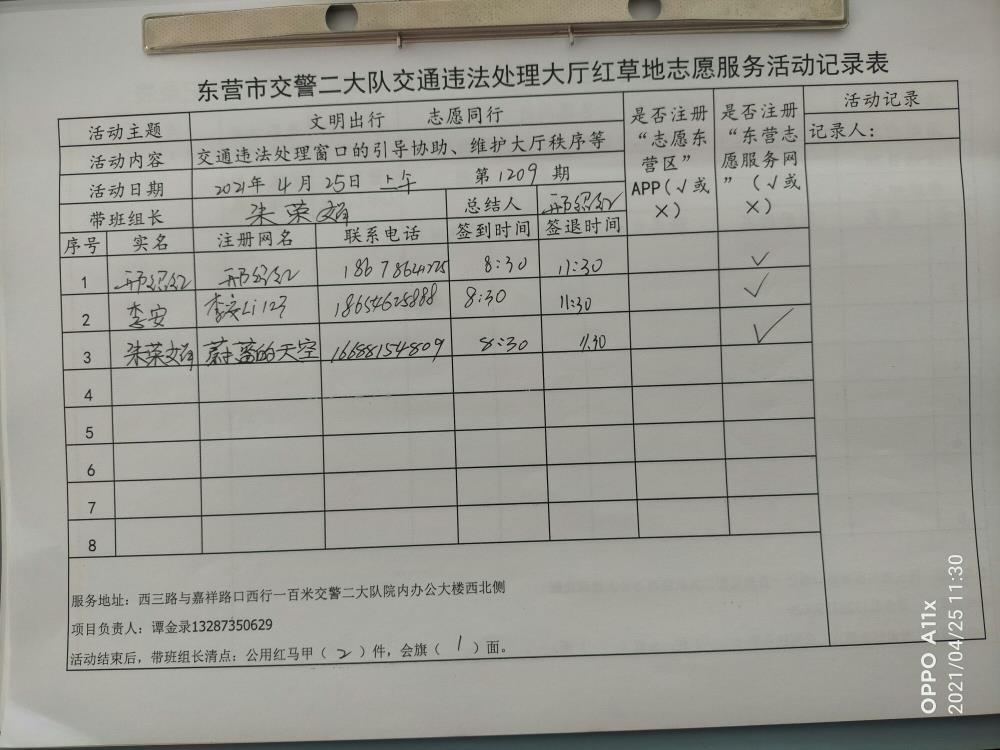 东营市交警二大队交通违法处理大厅红草地志愿服务活动记录表
活动主题 文明出行 志愿同行 是否注册“志愿东营区”APP(√或×) 是否注册“东营志愿服务网”(√或×) 活动记录
活动内容 交通违法处理窗口的引导协助、维护大厅秩序等 记录人:
活动日期 2021年4月25日上午 第1209期
带班组长 朱荣娟 总结人 邢绍红
序号 实名 注册网名 联系电话 签到时间 签退时间
1 邢绍红 邢绍红 8:30 11:30 √
2 李安 李安Li123 18654625888 8:30 11:30 √
3 朱荣娟 蔚蓝的天空 16688154809 8:30 11.30 √
4
5
6
7
8
服务地址: 西三路与嘉祥路口西行一百米交警二大队院内办公大楼西北侧
项目负责人: 谭金录13287350629
活动结束后, 带班组长清点: 公用红马甲(2)件, 会旗(1)面。
OPPO A11x
2021/04/25 11:30